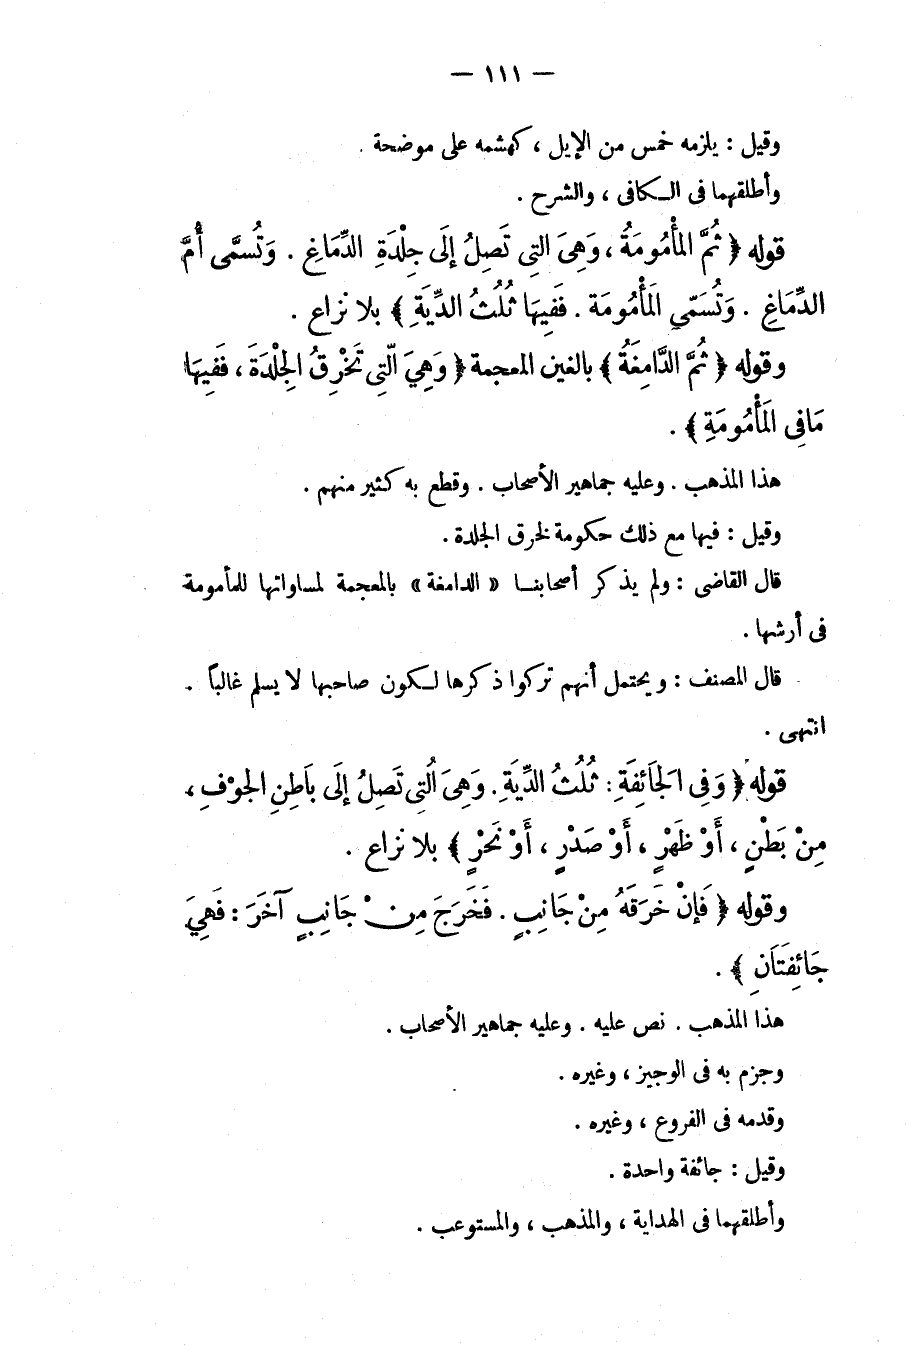 — ١١١ —
وقيل : يلزمه خمس من الإبل ، كهشمه على موضحة .
وأطلقهما فى الـكافى ، والشرح .
قوله ﴿ ثُمَّ المَأْمُومَةُ ، وَهِىَ التِى تَصِلُ إِلَى جِلْدَةِ الدِّمَاغِ . وَتُسمَّى أُمَّ
الدِّمَاغِ . وَتُسَمّى المَأْمُومَة . فَفِيهَا ثُلُثُ الدِّيَةِ ﴾ بلا نزاع .
وقوله ﴿ ثُمَّ الدَّامِغَةُ ﴾ بالغين المعجمة ﴿ وَهِيَ الّتِى تَخْرِقُ الجِلْدَةَ ، فَفِيهَا
مَافِى المَأْمُومَةِ ﴾ .
هذا المذهب . وعليه جماهير الأصحاب . وقطع به كثير منهم .
وقيل : فيها مع ذلك حكومة لخرق الجلدة .
قال القاضى : ولم يذكر أصحابنـا « الدامغة » بالمعجمة لمساواتها للمأمومة
فى أرشها .
قال المصنف : ويحتمل أنهم تركوا ذكرها لـكون صاحبها لا يسلم غالباً .
انتهى .
قوله ﴿ وَفِى الجَائِفَةِ : ثُلُثُ الدِّيَةِ . وَهِىَ الَّتِى تَصِلُ إِلَى بَاطِنِ الجوْفِ ،
مِنْ بَطْنٍ ، أَوْ ظَهْرٍ ، أَوْ صَدْرٍ ، أَوْ نَحْرٍ ﴾ بلا نزاع .
وقوله ﴿ فَإِنْ خَرَقَهُ مِنْ جَانِبٍ . فَخَرَجَ مِنْ جَانِبٍ آخَرَ : فَهِيَ
جَائِفَتَانِ ﴾ .
هذا المذهب . نص عليه . وعليه جماهير الأصحاب .
وجزم به فى الوجيز ، وغيره .
وقدمه فى الفروع ، وغيره .
وقيل : جائفة واحدة .
وأطلقهما فى الهداية ، والمذهب ، والمستوعب .